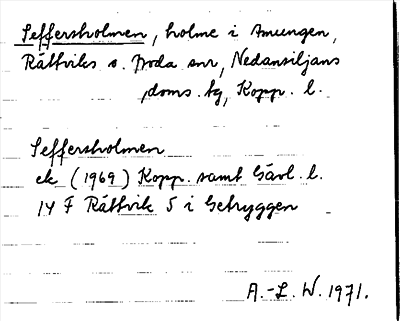 Seffersholmen, holme i Amungen,
Rättviks o. Boda snr, Nedansiljans
doms. tg, Kopp. l.
Seffersholmen
ek (1969) Kopp. samt Gävl. l.
14 F Rättvik S i Getryggen
A.-L. W. 1971.